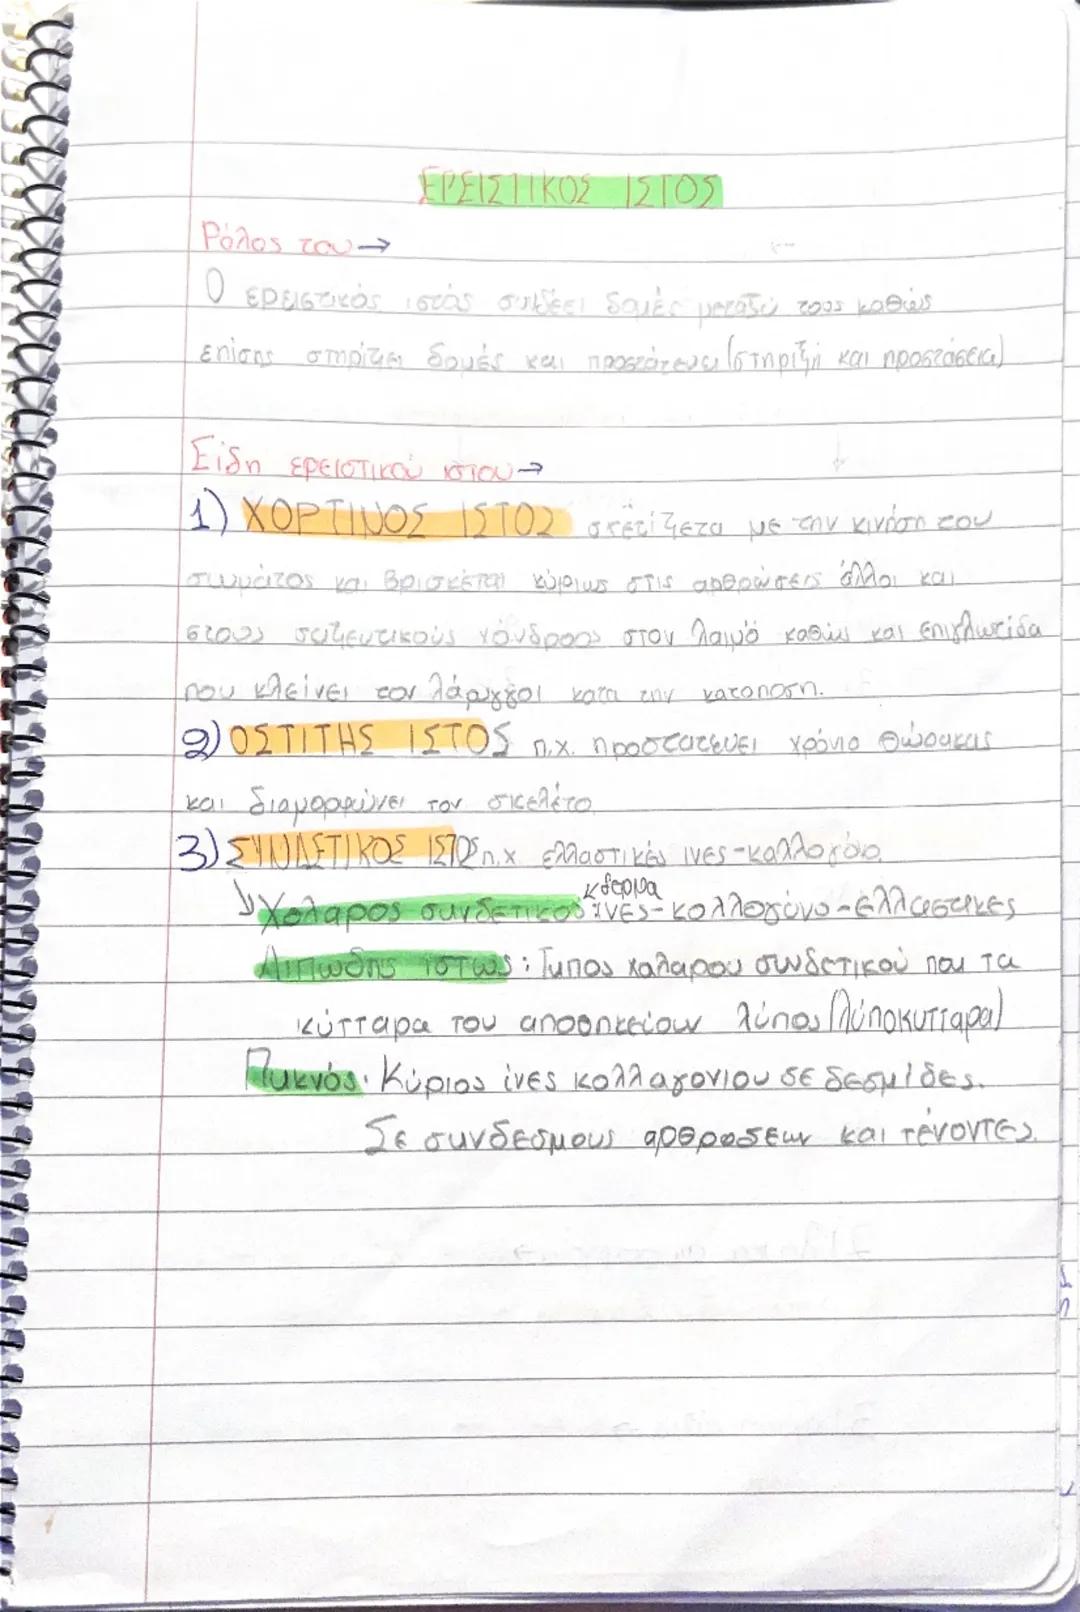 ΕΡΕΙΣΤΙΚΟΣ ΙΣΤΟΣ
Ρόλος του →
Ο ερειστικός ιστός συνδέει δομές μεταξύ τους καθώς
επίσης στηρίζει δομές και προστάτευει (στηριξή και προστάσεια)
Είδη ερειστικού ιστου →
1) ΧΟΡΤΙΝΟΣ ΙΣΤΟΣ σκετίζετα με την κινήση του
σωμάτος και βρισκέται κύριως στις αρθρώσεις άλλοι και
στους χόνδροος στον λαιμό καθώς και επιγλωτίδα
που κλείνει τον λάρυγγοι κατα την καταποση.
2) ΟΣΤΙΤΗΣ ΙΣΤΟΣ π.χ. προστατευει χρόνιο θώρακας
και διαμορφώνει τον σκελέτο
3) ΣΥΝΔΕΤΙΚΟΣ ΙΣΤΟΣ π.χ ελλαστικές ινες - καλλογόνο
δερμα
Χαλαρος συνδετικος ίνες - κολλογόνο - ελλαστικες
Λιπωδης ιστως : Τυπος χαλαρου συνδετικού που τα
κύτταρα του αποθηκείουν λύπος (λύποκυτταρα)
Πυκνός: Κύριος ίνες κολλαγονιου σε δεσμίδες.
Σε συνδεσμους αρθροσεων και τένοντες.